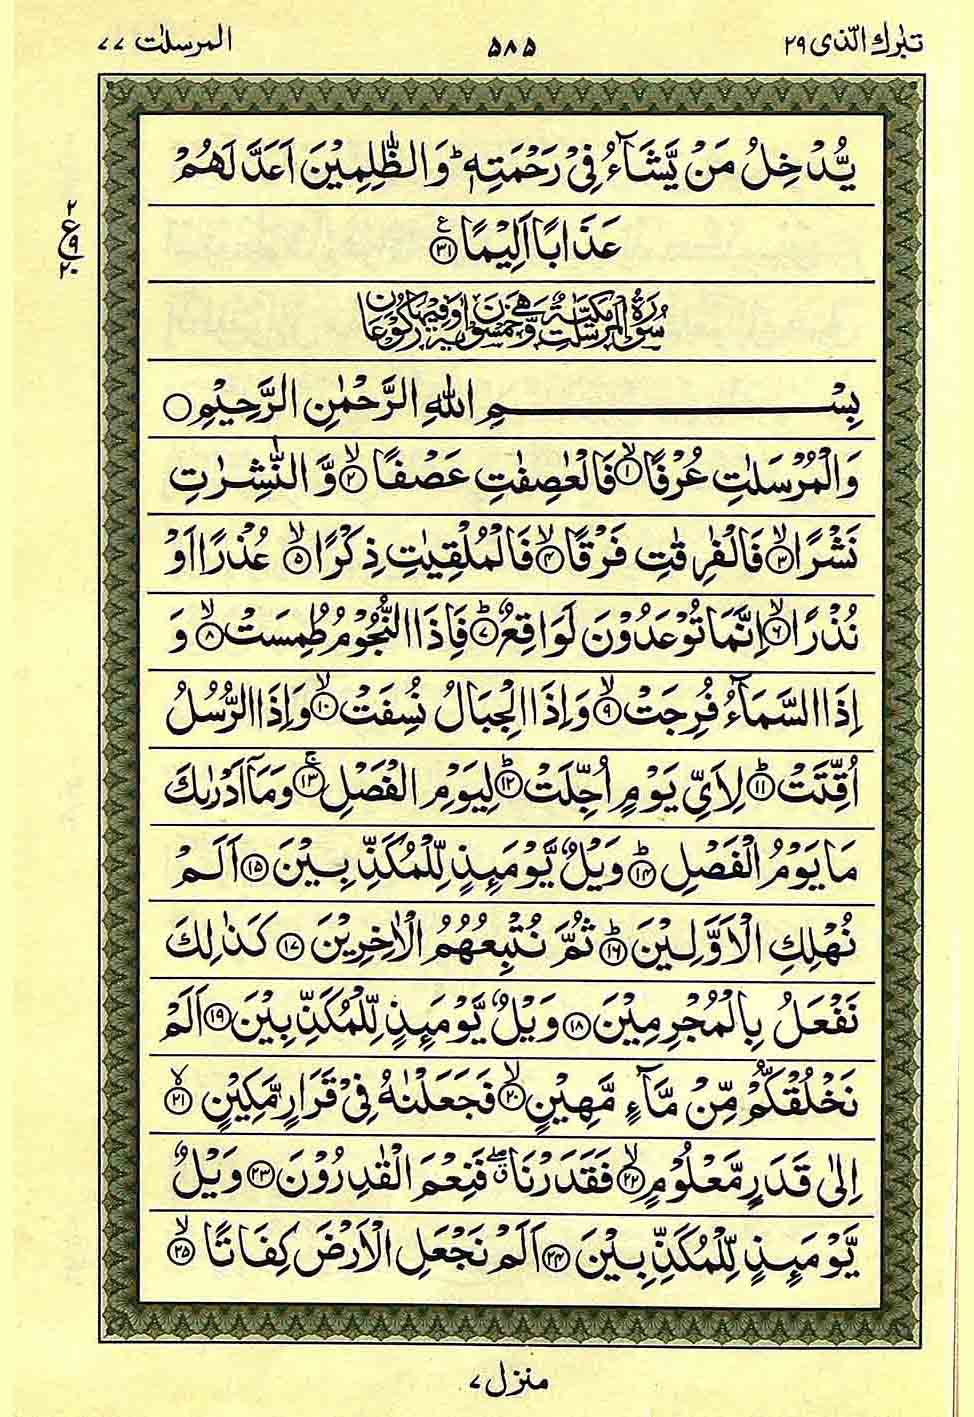 تبٰرك الّذی ۲۹ ۵۸۵ المرسلٰت ۷۷
یُّدْخِلُ مَنْ یَّشَآءُ فِیْ رَحْمَتِهٖ ؕ وَالظّٰلِمِیْنَ اَعَدَّ لَهُمْ
عَذَابًا اَلِیْمًا ۳۱ ع
۲ ع ۹ ۲۰
سُوْرَةُ الْمُرْسَلٰتِ مَكِّیَّةٌ وَّهِیَ خَمْسُوْنَ اٰیَةً وَّفِیْهَا رُكُوْعَانِ
بِسْمِ اللهِ الرَّحْمٰنِ الرَّحِیْمِ
وَالْمُرْسَلٰتِ عُرْفًا ۙ۱ فَالْعٰصِفٰتِ عَصْفًا ۙ۲ وَّ النّٰشِرٰتِ
نَشْرًا ۙ۳ فَالْفٰرِقٰتِ فَرْقًا ۙ۴ فَالْمُلْقِیٰتِ ذِكْرًا ۙ۵ عُذْرًا اَوْ
نُذْرًا ۙ۶ اِنَّمَا تُوْعَدُوْنَ لَوَاقِعٌ ؕ۷ فَاِذَا النُّجُوْمُ طُمِسَتْ ۙ۸ وَ
اِذَا السَّمَآءُ فُرِجَتْ ۙ۹ وَاِذَا الْجِبَالُ نُسِفَتْ ۙ۱۰ وَاِذَا الرُّسُلُ
اُقِّتَتْ ؕ۱۱ لِاَیِّ یَوْمٍ اُجِّلَتْ ؕ۱۲ لِیَوْمِ الْفَصْلِ ۚ۱۳ وَمَاۤ اَدْرٰىكَ
مَا یَوْمُ الْفَصْلِ ؕ۱۴ وَیْلٌ یَّوْمَىِٕذٍ لِّلْمُكَذِّبِیْنَ ۱۵ اَلَمْ
نُهْلِكِ الْاَوَّلِیْنَ ؕ۱۶ ثُمَّ نُتْبِعُهُمُ الْاٰخِرِیْنَ ۱۷ كَذٰلِكَ
نَفْعَلُ بِالْمُجْرِمِیْنَ ۱۸ وَیْلٌ یَّوْمَىِٕذٍ لِّلْمُكَذِّبِیْنَ ۱۹ اَلَمْ
نَخْلُقْكُّمْ مِّنْ مَّآءٍ مَّهِیْنٍ ۙ۲۰ فَجَعَلْنٰهُ فِیْ قَرَارٍ مَّكِیْنٍ ۙ۲۱
اِلٰى قَدَرٍ مَّعْلُوْمٍ ۙ۲۲ فَقَدَرْنَا ۖۗ فَنِعْمَ الْقٰدِرُوْنَ ۲۳ وَیْلٌ
یَّوْمَىِٕذٍ لِّلْمُكَذِّبِیْنَ ۲۴ اَلَمْ نَجْعَلِ الْاَرْضَ كِفَاتًا ۙ۲۵
منزل ۷